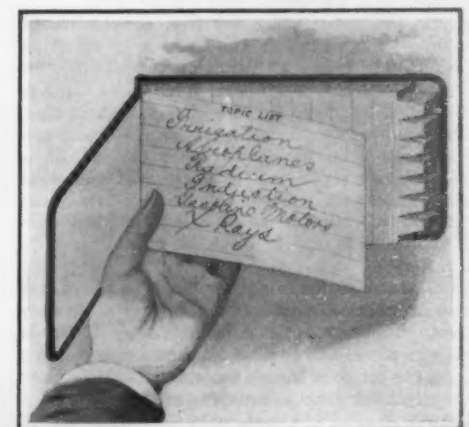 TOPIC LIST
Irrigation
Aeroplanes
Radium
Induction
Gasoline Motors
X Rays